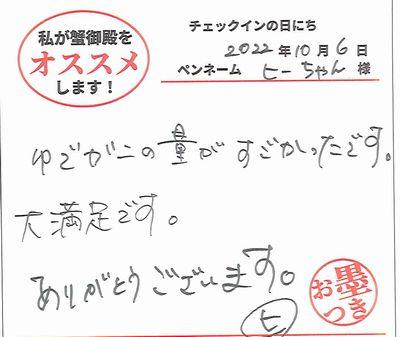 私が蟹御殿を
オススメ
します！
チェックインの日にち
2022年10月6日
ペンネーム ヒーちゃん 様
ゆでガニの量がすごかったです。
大満足です。
ありがとうございます。
ヒ
お墨つき